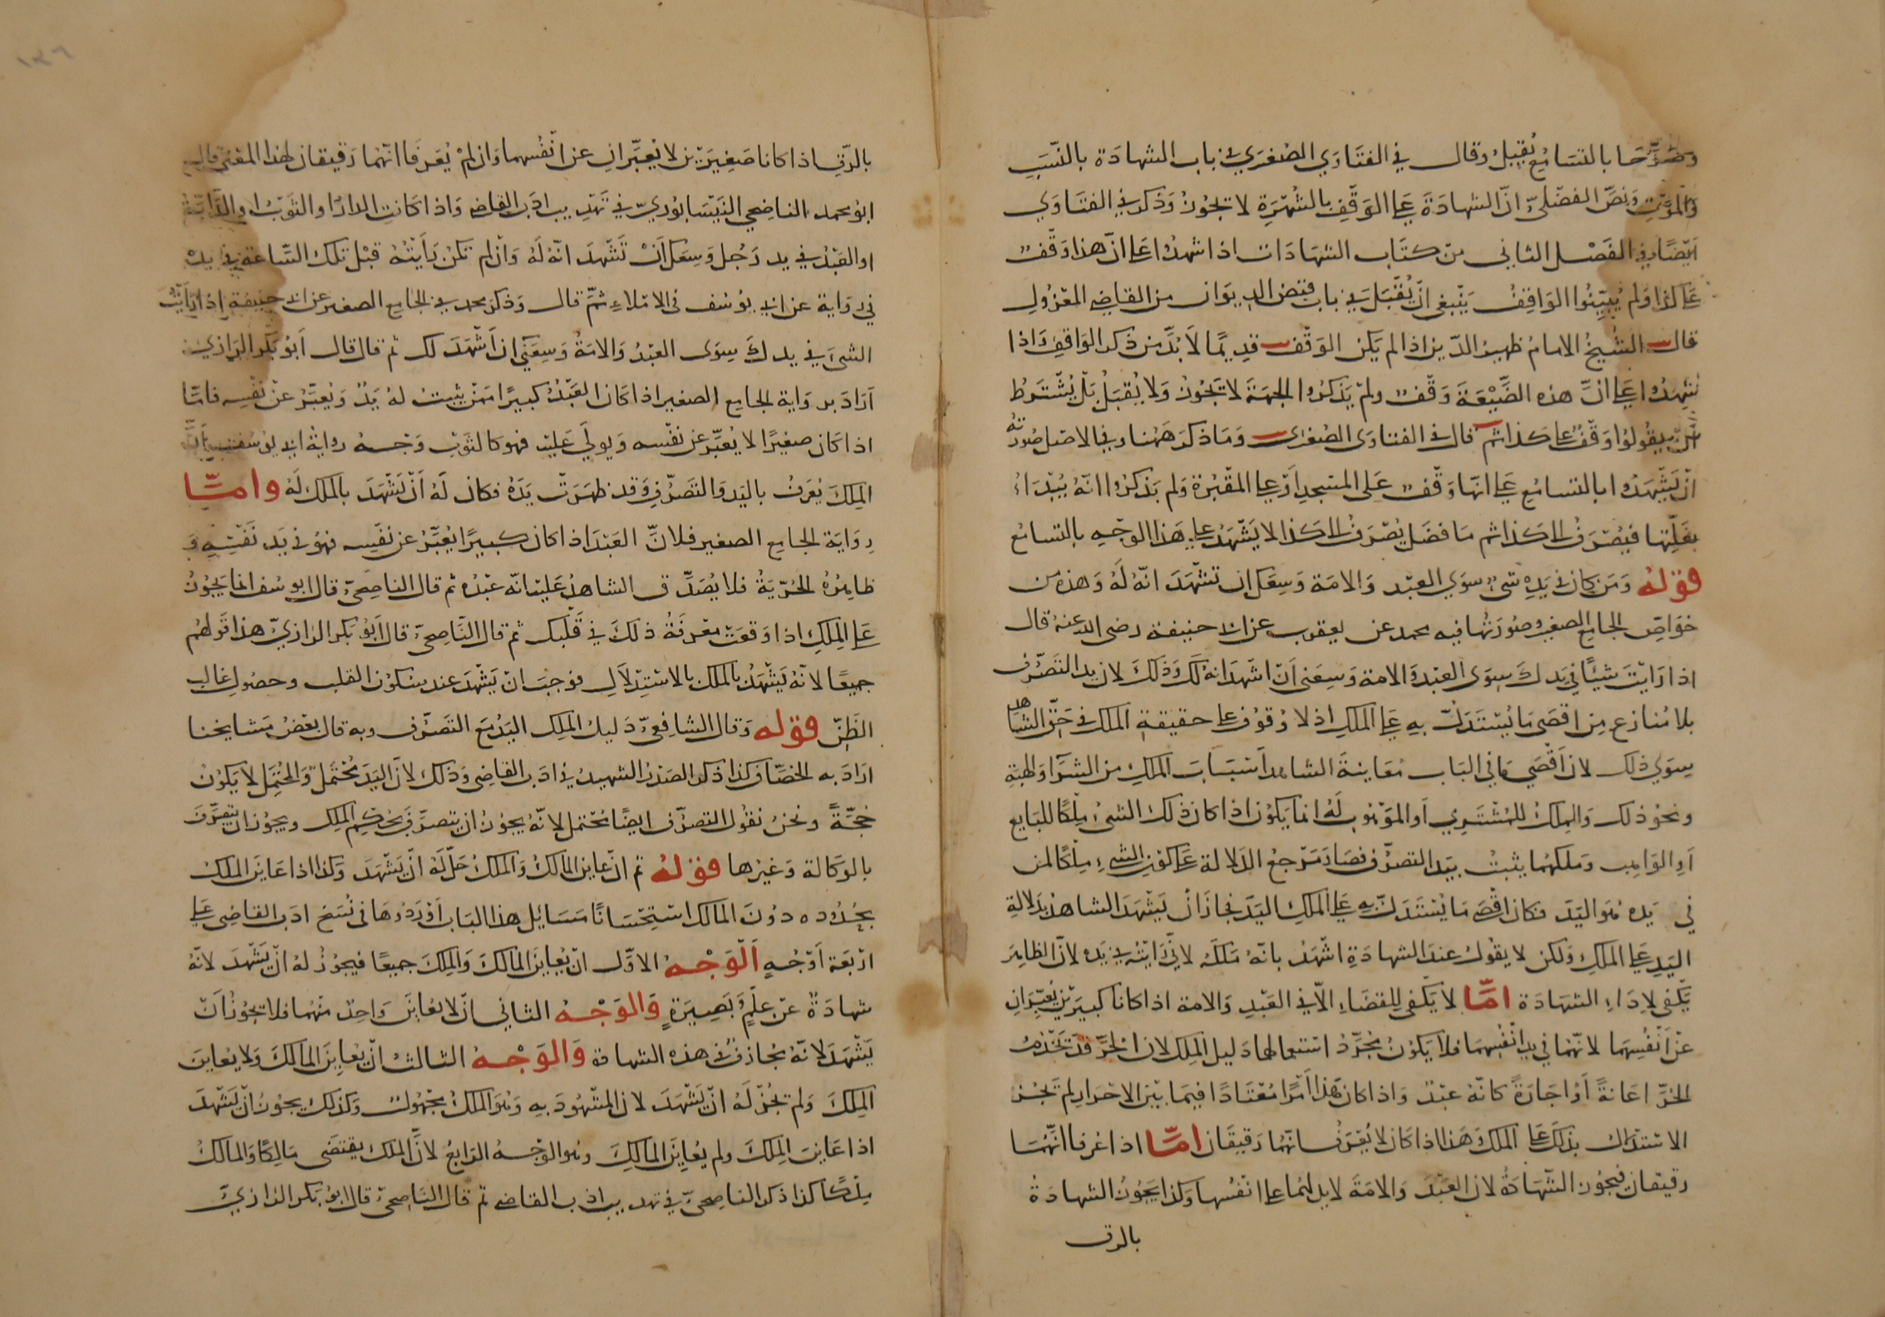 وصرحا بالتسامع يقبل وقال في الفتاوي الصغرى في باب الشهادة بالنسب
والموت ونص الفضلي ان الشهادة على الوقف بالشهرة لا تجوز وذكر في الفتاوي
ايضا في الفصل الثاني من كتاب الشهادات اذا شهدوا على ان هذا وقف
على كذا ولم يبينوا الواقف ينبغي ان تقبل في باب قبض الديوان من القاضي المعزول
قال الشيخ الامام ظهير الدين اذا لم يكن الوقف قديما لا بد من ذكر الواقف واذا
شهدوا على ان هذه الضيعة وقف ولم يذكروا الجهة لا تجوز ولا يقبل بل يشترط
ان يقولوا وقف على كذا ثم قال في الفتاوى الصغرى وما ذكر ههنا وفي الاصل صورته
ان يشهدوا بالتسامع على انها وقف على المسجد او على المقبرة ولم يذكروا انه يبدأ
بغلتها فيصرف الى كذا ثم ما فضل يصرف الى كذا لا يشهد على هذا الوجه بالتسامع
قوله ومن كان في يده شيء سوى العبد والامة وسعك ان تشهد انه له وهذه من
خواص الجامع الصغير وصورتها فيه محمد عن يعقوب عن ابي حنيفة رضي الله عنه قال
اذا رايت شيئا في يدك سوى العبد والامة وسعني ان اشهد انه لك وذلك لان يد التصرف
بلا منازع من اقصى ما يستدل به على الملك اذ لا وقوف على حقيقة الملك في حق الشاهد
سوى ذلك لان اقصى ما في الباب معاينة الشاهد اسباب الملك من الشرا والهبة
ونحو ذلك والملك للمشتري او الموهوب له انما يكون اذا كان ذلك الشئ ملكا للبايع
او الواهب وملكهما يثبت بيد التصرف فصار مرجع الدلالة على كون الشيء ملكا لمن
في يده هو اليد فكان اقصى ما يستدل به على الملك اليد فجاز ان يشهد الشاهد بدلالة
اليد على الملك ولكن لا يقول عند الشهادة اشهد بانه ملكه لاني رايته في يده لان الظاهر
يكفي لاداء الشهادة اما لا يكفي للقضاء الا في العبد والامة اذا كانا كبيرين يعبران
عن انفسهما لانهما في يد انفسهما فلا يكون مجرد استعمالهما دليل الملك لان الحر قد يخدم
الحر اعانة او اجارة كانه عبد واذا كان هذا امرا معتادا فيما بين الاحرار لم تجز
الاستدلال بذلك على الملك هذا اذا كان لا يعرف انهما رقيقان اما اذا عرفا انهما
رقيقان فيجوز الشهادة لان العبد والامة لا يد لهما على انفسهما وكذا يجوز الشهادة
بالرق
بالرق اذا كانا صغيرين لا يعبران عن انفسهما وان لم يعرفا انهما رقيقان لهذا المعنى قال
ابو محمد الناصحي النيسابوري في تهذيب ادب القاضي واذا كانت الدار او الثوب او الدابة
او العبد في يد رجل وسعك ان تشهد انه له وان لم تكن رايته قبل تلك الساعة في يده
في رواية عن ابي يوسف في الاملاء ثم قال وذكر محمد في الجامع الصغير عن ابي حنيفة اذا رايت
الشئ في يدك سوى العبد والامة وسعني ان اشهد لك ثم قال قال ابو بكر الرازي
اراد برواية الجامع الصغير اذا كان العبد كبيرا ممن يثبت له يد ويعبر عن نفسه فاما
اذا كان صغيرا لا يعبر عن نفسه ويولى عليه فهو كالثوب وجه رواية ابي يوسف ان
الملك يعرف باليد والتصرف وقد ظهرت يده فكان له ان يشهد بالملك له واما
رواية الجامع الصغير فلان العبد اذا كان كبيرا يعبر عن نفسه فهو في يد نفسه و
ظاهره الحرية فلا يصدق الشاهد عليه انه عبده ثم قال الناصحي قال ابو يوسف انما يجوز
على الملك اذا وقعت معرفة ذلك في قلبك ثم قال الناصحي قال ابو بكر الرازي هذا قولهم
جميعا لانه يشهد بالملك بالاستدلال فوجب ان يشهد عند سكون القلب وحصول غالب
الظن قوله وقال الشافعي دليل الملك اليد مع التصرف وبه قال بعض مشايخنا
اراد به الخصاف كذا ذكر الصدر الشهيد في ادب القاضي وذلك لان اليد محتمل والمحتمل لا يكون
حجة ونحن نقول التصرف ايضا محتمل لانه يجوز ان يتصرف بحكم الملك ويجوز ان يتصرف
بالوكالة وغيرها قوله ثم ان عاين المالك والملك حل له ان يشهد وكذا اذا عاين الملك
بحدوده دون المالك استحسانا مسائل هذا الباب اوردوها في نسخ ادب القاضي على
اربعة اوجه الوجه الاول ان يعاين المالك والملك جميعا فيجوز له ان يشهد لانه
شهادة عن علم وبصيرة والوجه الثاني ان لا يعاين واحدا منهما فلا يجوز ان
يشهد لانه مجازف في هذه الشهادة والوجه الثالث ان يعاين المالك ولا يعاين
الملك ولم تجز له ان يشهد لان المشهود به وهو الملك مجهول وكذلك يجوز ان يشهد
اذا عاين الملك ولم يعاين المالك وهو الوجه الرابع لان الملك يقتضى مالكا والمالك
ملكا كذا ذكر الناصحي في تهذيب ادب القاضي ثم قال الناصحي قال ابو بكر الرازي